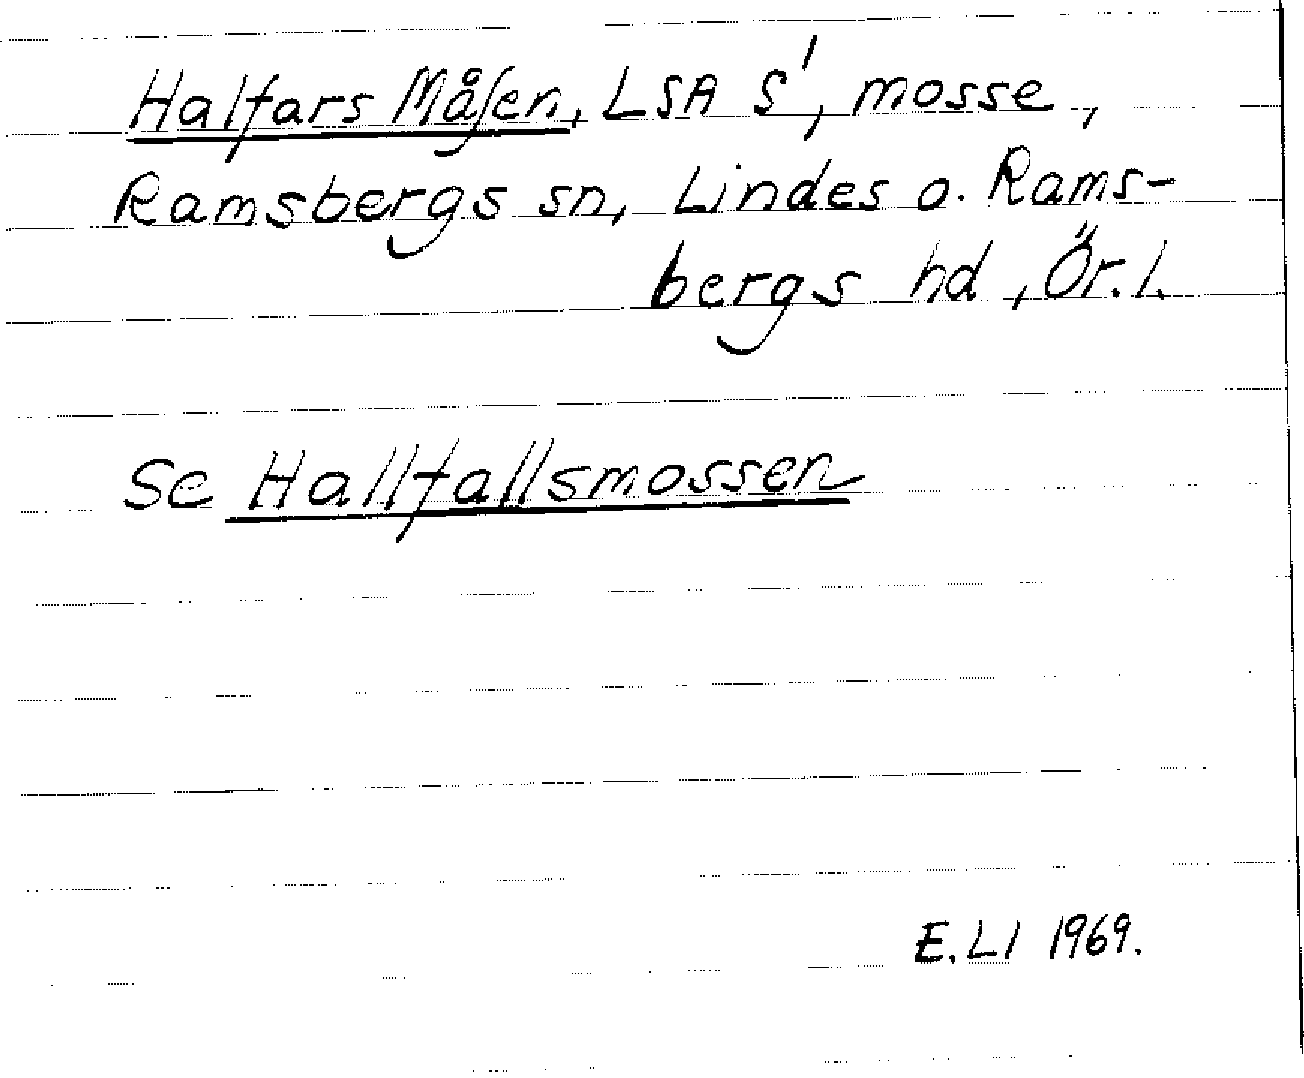 Halfars Måsen, LSA S', mosse,
Ramsbergs sn, Lindes o. Rams-
bergs hd, Ör. l.
Se Hallfallsmossen
E. LI 1969.